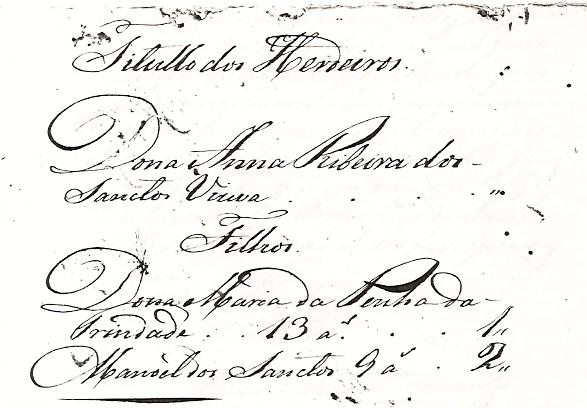 Titullo dos Herdeiros.
Dona Anna Ribeira dos-
Sanctos Viuva . . . . "
Filhos
Dona Maria da Penha da-
Trindade . . 13 a.s . . 1"
Manoel dos Sanctos 9 a.s . 2"